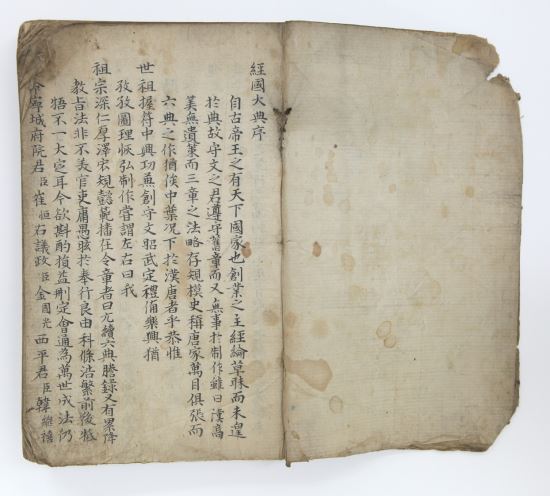 經國大典序
自古帝王之有天下國家也創業之主經綸草昧而未遑
於典故守文之君遵守舊章而又無事於制作雖曰漢高
筭無遺策而三章之法略存規模史稱唐家萬目俱張而
六典之作猶俟中葉況下於漢唐者乎恭惟
世祖握符中興功兼創守文昭武定禮備樂興猶
孜孜圖理恢弘制作嘗謂左右曰我
祖宗深仁厚澤宏規懿範播在令章者曰元續六典謄錄又有累降
教旨法非不美官吏庸愚眩於奉行良由科條浩繁前後牴
牾不一大定耳今欲斟酌損益刪定會通為萬世成法仍
命寧城府院君臣崔恒右議政臣金國光西平君臣韓繼禧